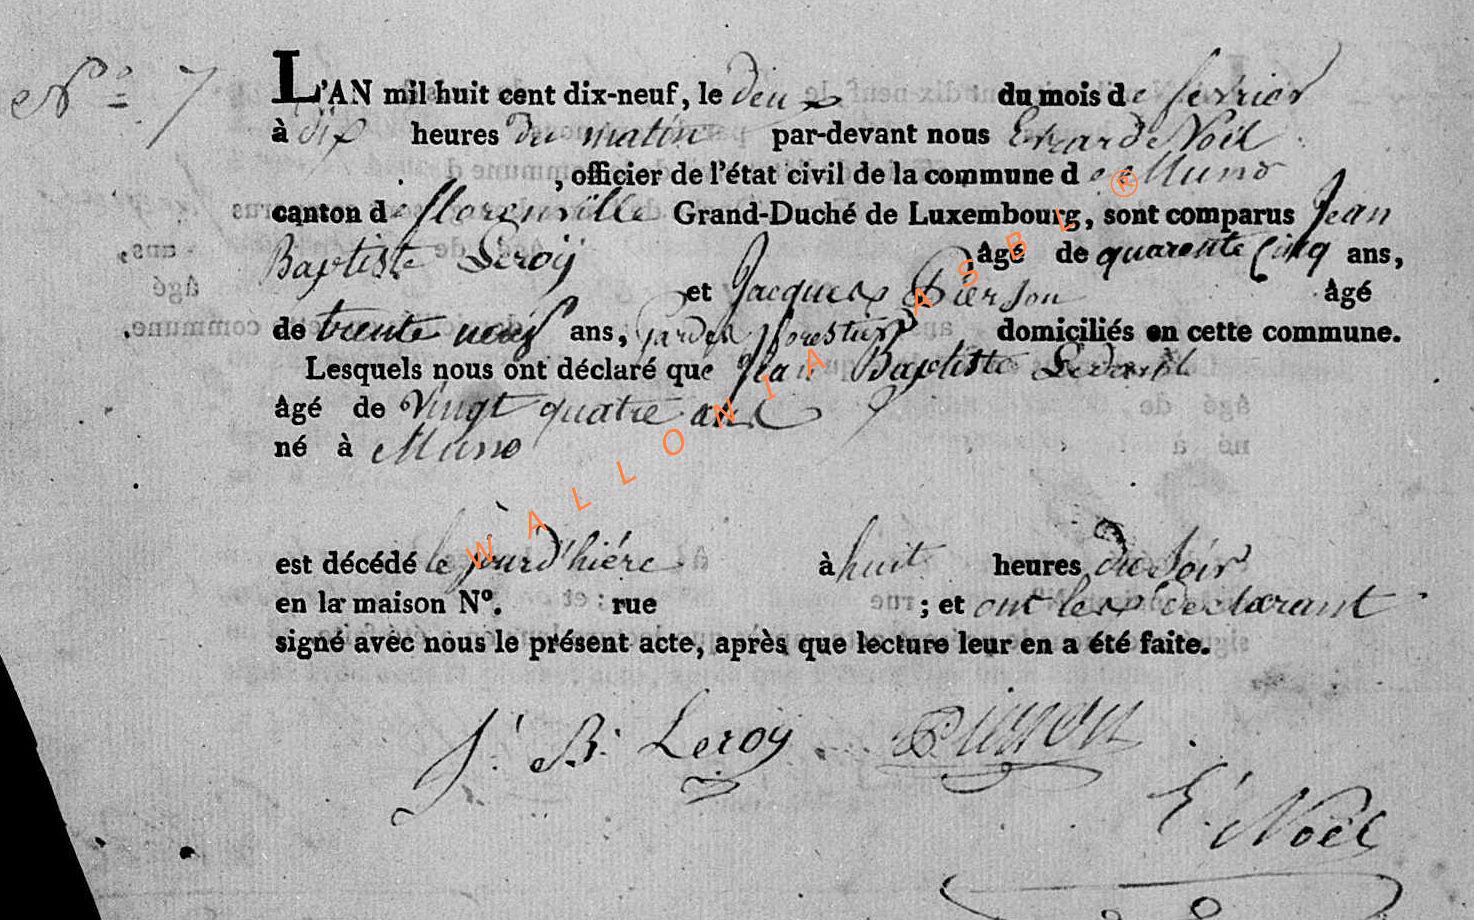 N° 7
L'AN mil huit cent dix-neuf, le deux du mois de fevrier
à dix heures du matin par-devant nous Evrard Noël
, officier de l'état civil de la commune de Muno
canton de florenville Grand-Duché de Luxembourg, sont comparus Jean
Baptiste Leroy âgé de quarente Cinq ans,
et Jacques Pierson âgé
de trente neuf ans, gardes forestiers domiciliés en cette commune.
Lesquels nous ont déclaré que Jean Baptiste
âgé de Vingt quatre ans
né à Muno
est décédé le jourd'hiére à huit heures du Soir
en la maison N°. rue ; et ont les declarant
signé avec nous le présent acte, après que lecture leur en a été faite.
J. B. Leroy Pierson
E. Noël
WALLONIA ASBL ®